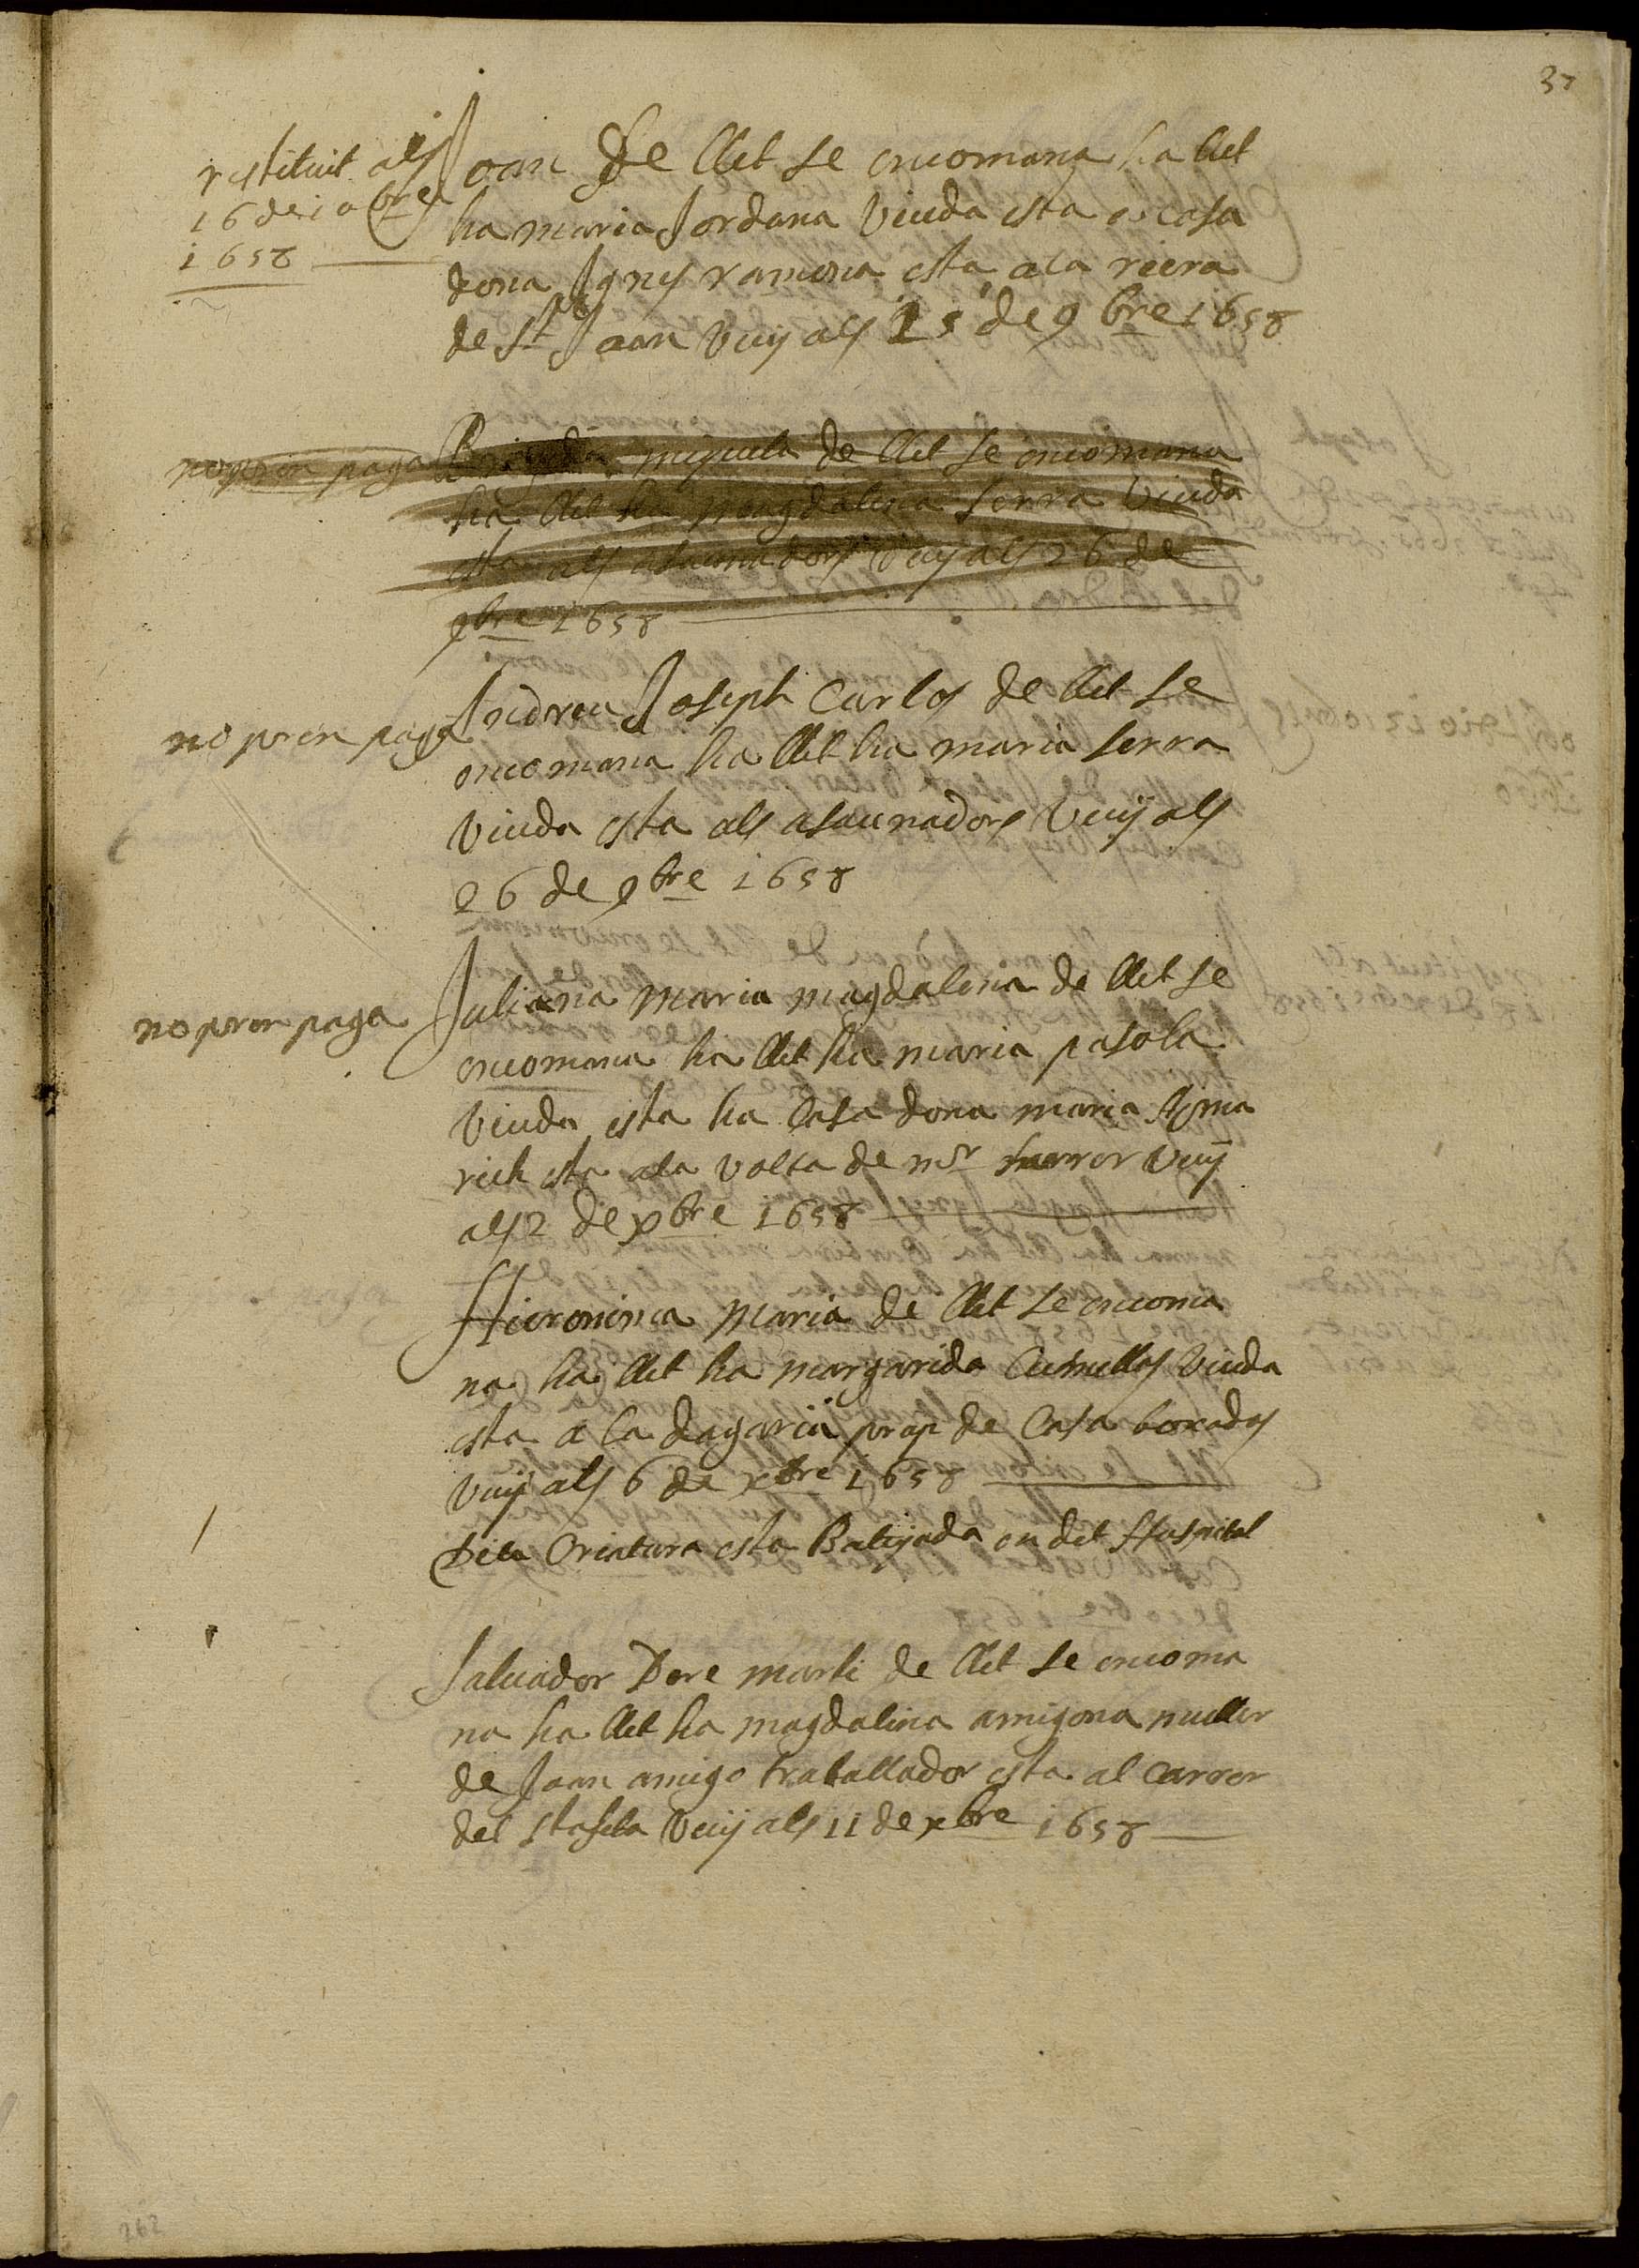 37
restituit als
16 de 10bre
1658
Joan de llet se encomana ha llet
ha maria Jordana Viuda esta en casa
dona Ignes ramona esta a la riera
de St Joan Vuy als 15 de 9bre 1658
no pren paga
Brigida miquela de llet se encomana
ha llet ha magdalena serra Viuda
esta als asaunadors Vuy als 26 de
9bre 1658
no pren paga
Andreu Joseph Carlos de llet se
encomana ha llet ha maria serra
Viuda esta als asaunadors Vuy als
26 de 9bre 1658
no pren paga
Juliana maria magdalena de llet se
encomana ha llet ha maria pasola
Viuda esta ha Casa dona maria Ayma
rich esta a la volta de msr ferrer Vuy
als 2 de xbre 1658
Hieronima maria de llet se encoma
na ha llet ha margarida Cumellas Viuda
esta a la dagaria prop de Casa boxadas
Vuy als 6 de xbre 1658
Dita Criatura esta Batejada en det Hospital
Salvador Pere marti de llet se encoma
na ha llet ha magdalena amigona muller
de Joan amigo traballador esta al Carrer
del stasela Vuy als 11 de xbre 1658
262